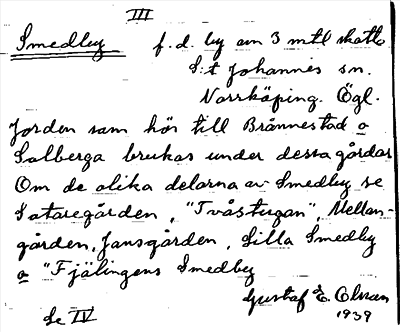 III
Smedby f. d. by om 3 mtl skatte
S:t Johannis sn.
Norrköping. Ögl.
Jorden som hör till Brännestad o
Solberga brukas under dessa gårdar
Om de olika delarna av Smedby se
Sataregården, "Tvåstugan", Mellan-
gården, Jansgården, Lilla Smedby
o "Fjälingens Smedby
Gustaf E. Olsson
Se IV 1939